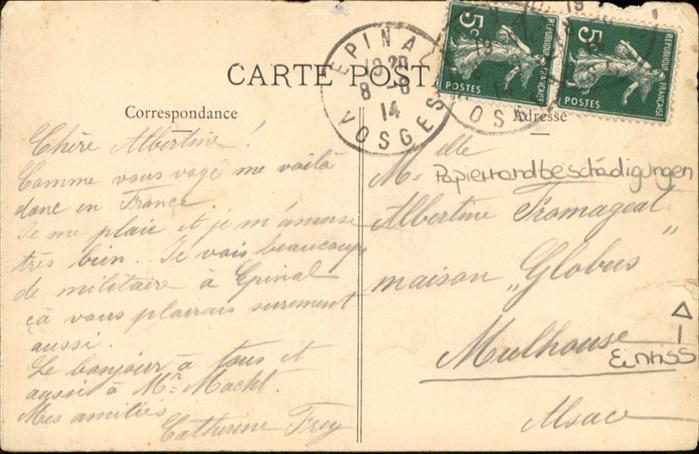 CARTE POSTALE
EPINAL
19 20
8 -6
14
VOSGES
5c
RÉPUBLIQUE FRANÇAISE
POSTES
5c
RÉPUBLIQUE FRANÇAISE
POSTES
Correspondance
Chère Albertine !
Comme vous voyez me voilà
donc en France
Je me plais et je m'amuse
très bien. Je vois beaucoup
de militaire à Epinal
çà vous plairais surement
aussi.
Le bonjour à tous et
aussi à Mr. Macht.
Mes amitiés
Catherine Frey
Adresse
Melle
Papierrandbeschädigungen
Albertine Fromageat
maison „Globus"
Mulhouse
Einriss
Alsace